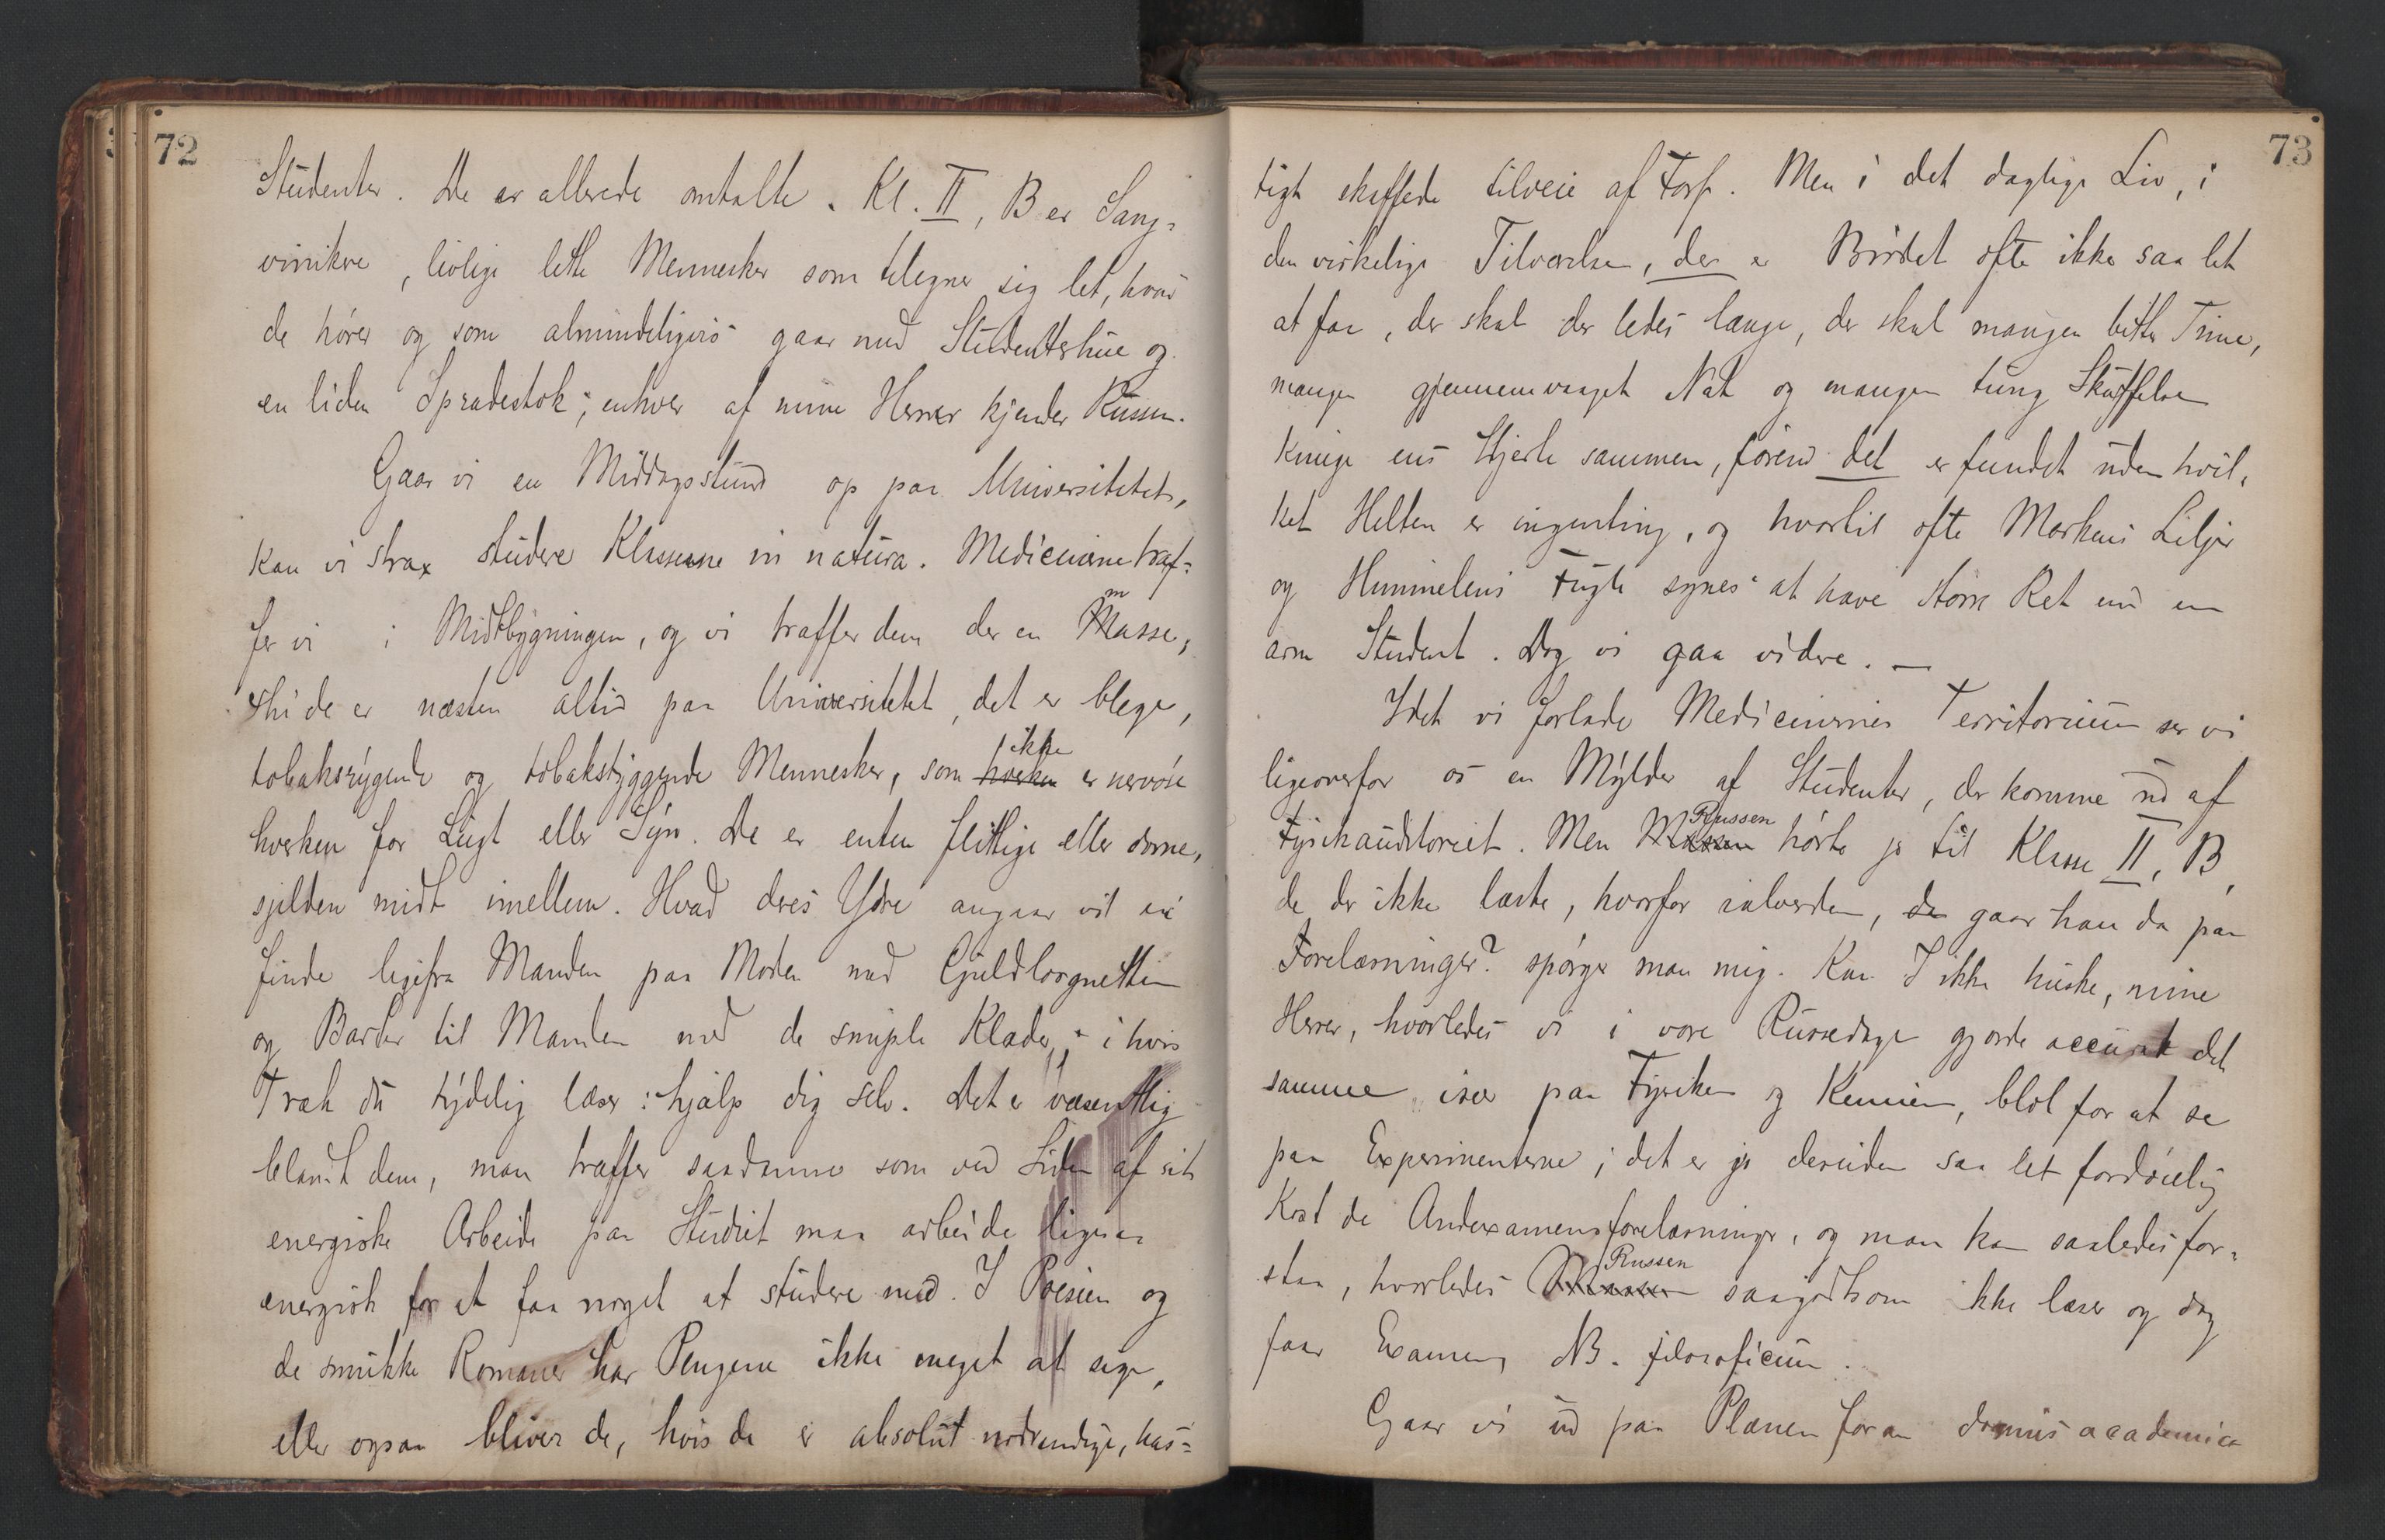 72
Studenter. De er allerede omtalte. Kl. II, B er Sang-
vinikere, livlige lette Mennesker som tilegner sig let, hvad
de hører og som almindeligvis gaar med Studenterhue og
en liden Spradestok; enhver af mine Herrer kjender Russen.
Gaar vi en Middagsstund op paa Universitetet,
kan vi strax studere Klasserne in natura. Medicinerne træf-
fer vi i Midtbygningen, og vi træffer dem der en masse,
thi de er næsten altid paa Universitetet, det er blege,
tobaksrygende og tobakstyggende Mennesker, som hverken ikke er nervøse
hverken for Lugt eller Syn. De er enten flittige eller dovne,
sjelden midt imellem. Hvad deres Ydre angaar vil vi
finde ligefra Manden paa Moden med Guldlorgnetten
og Barter til Manden med de simple Klæder, i hvis
Træk du tydelig læser: hjælp dig selv. Det er væsentlig
blandt dem, man træffer saadanne som ved Siden af sit
energiske Arbeide paa Studiet maa arbeide ligesaa
energisk for at faa noget at studere med. I Poesien og
de smukke Romaner har Pengene ikke meget at sige,
eller ogsaa bliver de, hvis de er absolut nødvendige, has-
73
tigt skaffede tilveie af Forf. Men i det daglige Liv, i
den virkelige Tilværelse, der er Brødet ofte ikke saa let
at faa, der skal der ledes længe, der skal mangen bitter Time,
mangen gjennemvaaget Nat og mangen tung Skuffelse
knuge ens Hjerte sammen, førend det er fundet uden hvil-
ket Helten er ingenting, og hvortil ofte Markens Liljer
og Himmelens Fugle synes at have større Ret end en
arm Student. Dog vi gaa videre. —
Idet vi forlade Medicinernes Territorium ser vi
ligeoverfor os en Mylder af Studenter, der komme ud af
Fysikauditoriet. Men Russen hørte jo til Klasse II, B,
de der ikke læste, hvorfor ialverden, da gaar han da paa
Forelæsninger? spørger man mig. Kan I ikke huske, mine
Herrer, hvorledes vi i vore Russedage gjorde accurat det
samme især paa Fysiken og Kemien, blot for at se
paa Experimenterne; det er jo desuden saa let fordøielig
Kost de Andenexamensforelæsninger, og man kan saaledes for-
staa, hvorledes Russen saagodtsom ikke læser og dog
faar Examen, NB. filosoficum.
Gaar vi ud paa Planen foran domus academica